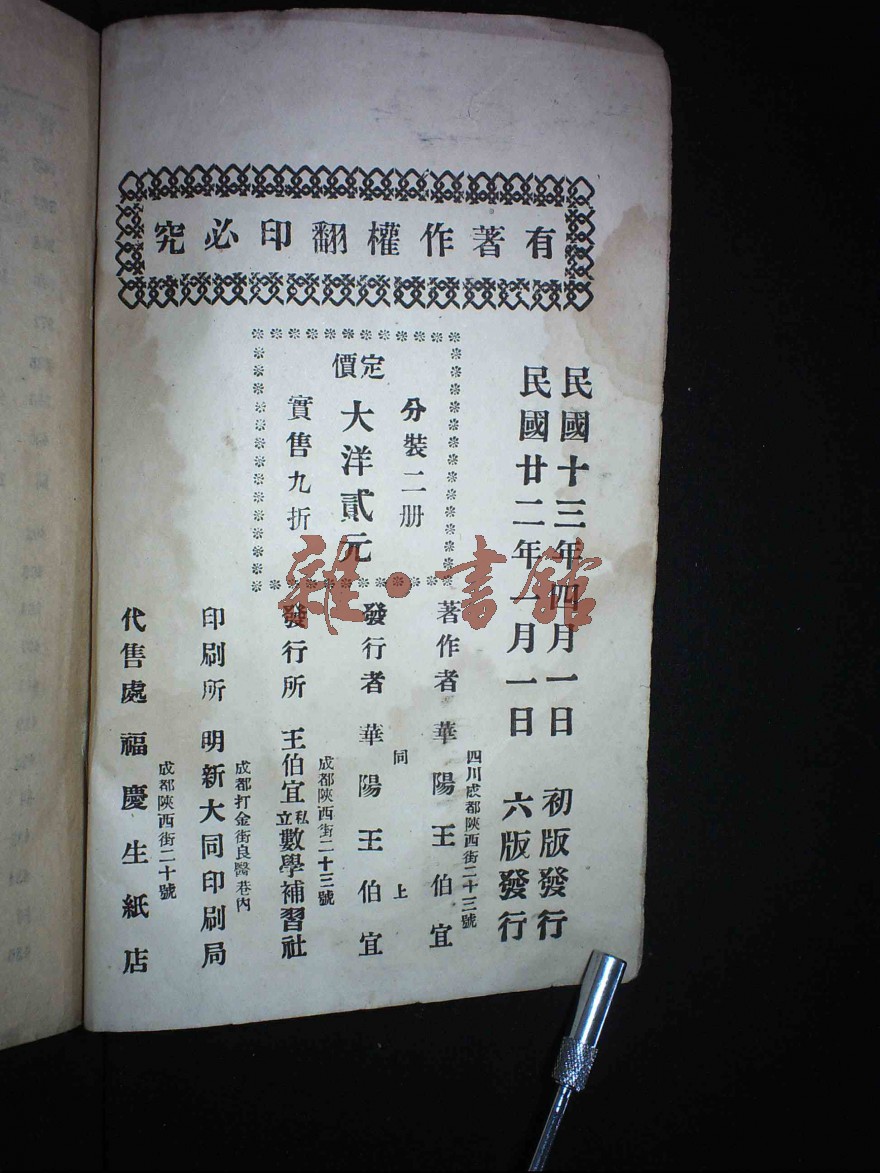 有著作權翻印必究
民國十三年四月一日 初版發行
民國廿二年一月一日 六版發行
分裝二册
定價
大洋貳元
實售九折
四川成都陝西街二十三號
著作者 華陽王伯宜
同上
發行者 華陽王伯宜
成都陝西街二十三號
發行所 王伯宜私立數學補習社
成都打金街良醫巷內
印刷所 明新大同印刷局
成都陝西街二十號
代售處 福慶生紙店
雜·書館